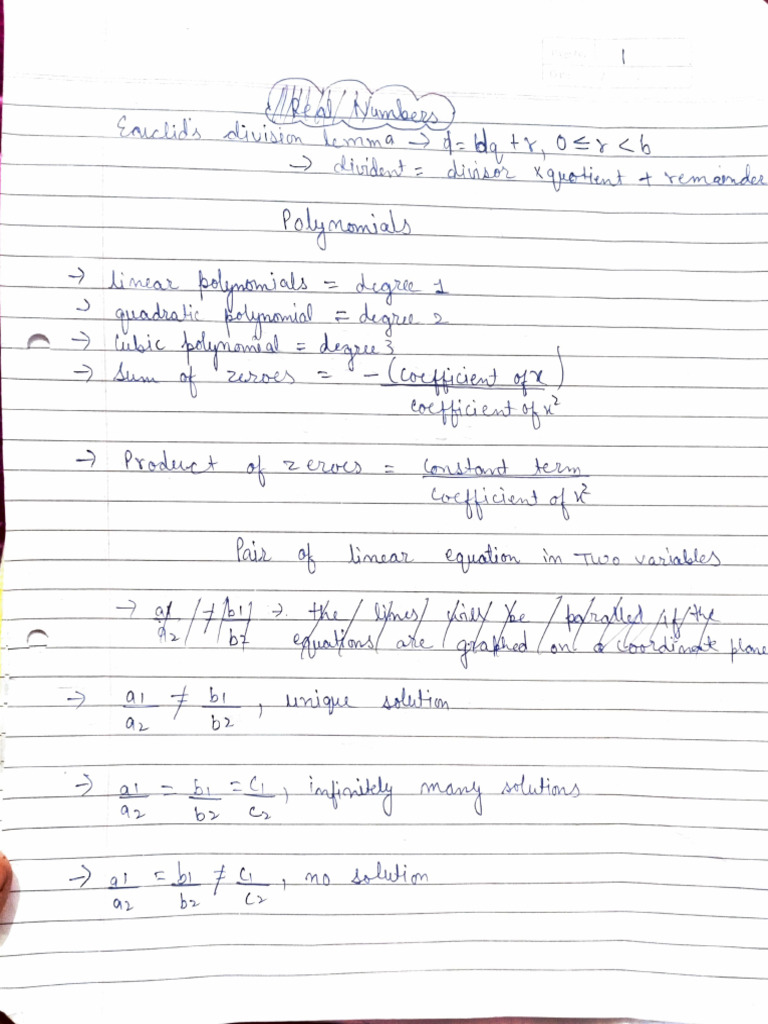 1
Real Numbers
Euclid's division lemma → a = bq + r, 0 ≤ r < b
→ divident = divisor × quotient + remainder
Polynomials
→ linear polynomials = degree 1
→ quadratic polynomial = degree 2
→ Cubic polynomial = degree 3
→ Sum of zeroes = - (coefficient of x)
coefficient of x²
→ Product of zeroes = constant term
coefficient of x²
Pair of linear equation in Two variables
→ a1/a2 ≠ b1/b2 → the lines will be parallel if the
equations are graphed on a coordinate plane
→ a1/a2 ≠ b1/b2, unique solution
→ a1/a2 = b1/b2 = c1/c2, infinitely many solutions
→ a1/a2 = b1/b2 ≠ c1/c2, no solution